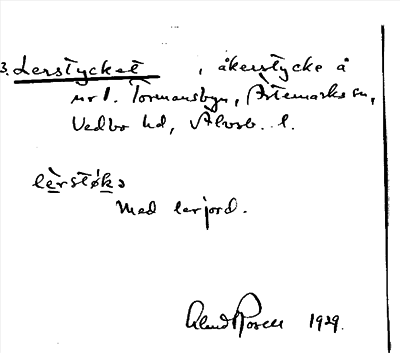 3. Lerstycket, åkerstycke å
nr 1. Tormansbyn, Ärtemarks sn,
Vedbo hd, Älvsb. l.
lèrstø̀kə
Med lerjord.
1929.